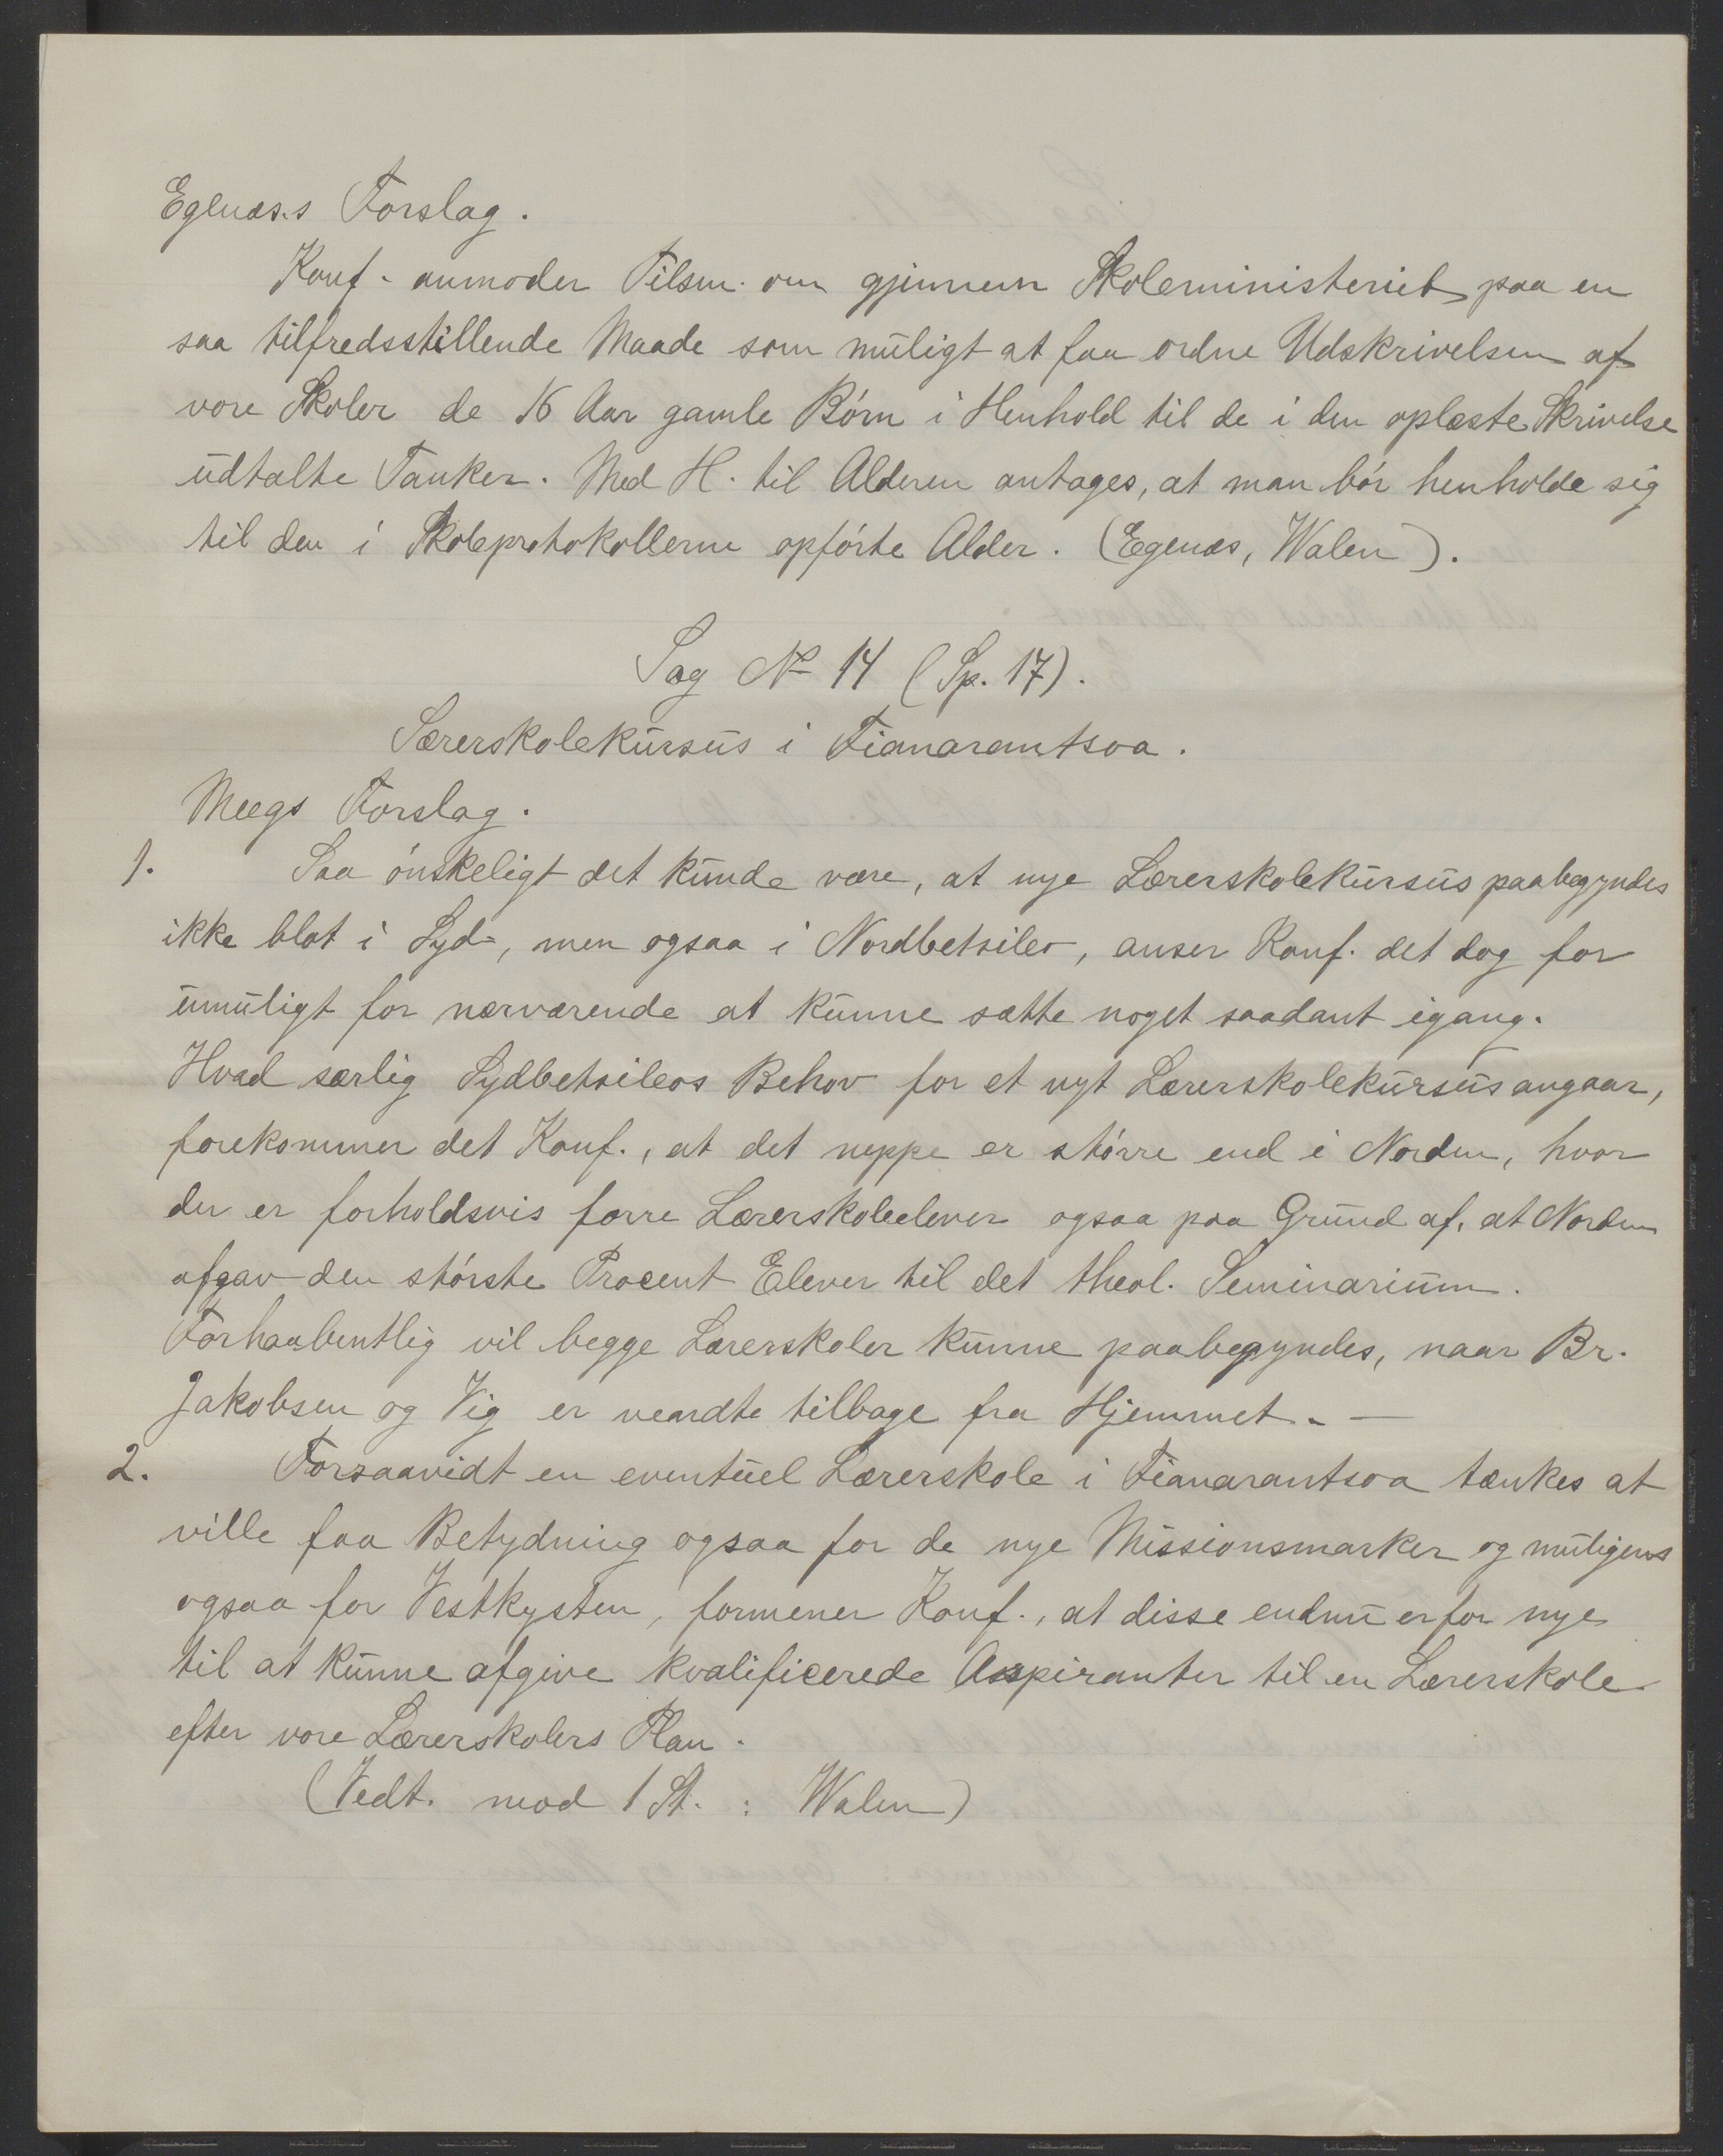 Egenæs.s Forslag.
Konf. anmoder Tilsm. om gjennem Skoleministeriet paa en
saa tilfredsstillende Maade som muligt at faa ordne Udskrivelsen af
vore Skoler de 16 Aar gamle Børn i Henhold til de i den oplæste Skrivelse
udtalte Tanker. Med H. til Alderen antages, at man bør henholde sig
til den i Skoleprotokollerne opførte Alder. (Egenæs, Walen).
Sag No 14 (Sp. 17).
Lærerskolekursus i Fianarantsoa.
Meegs Forslag.
1. Saa ønskeligt det kunde være, at nye Lærerskolekursus paabegyndes
ikke blot i Syd-, men ogsaa i Nordbetsileo, anser Konf. det dog for
umuligt for nærværende at kunne sætte noget saadant igang.
Hvad særlig Sydbetsileos Behov for et nyt Lærerskolekursus angaar,
forekommer det Konf., at det neppe er større end i Norden, hvor
der er forholdsvis færre Lærerskoleelever ogsaa paa Grund af, at Norden
afgav den største Procent Elever til det theol. Seminarium.
Forhaabentlig vil begge Lærerskoler kunne paabegyndes, naar Br.
Jakobsen og Vig er vendte tilbage fra Hjemmet. —
2. Forsaavidt en eventuel Lærerskole i Fianarantsoa tænkes at
ville faa Betydning ogsaa for de nye Missionsmarker og muligens
ogsaa for Vestkysten, formener Konf., at disse endnu er for nye
til at kunne afgive kvalificerede Aspiranter til en Lærerskole
efter vore Lærerskolers Plan.
(Vedt. mod 1 St. : Walen)